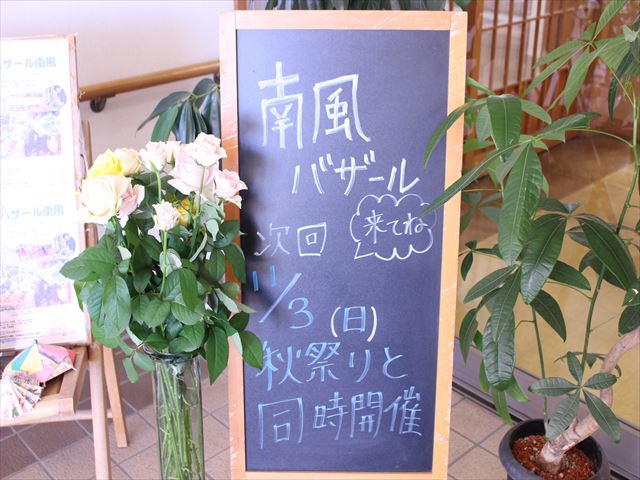 南風
バザール
次回
来てね
11/3(日)
秋祭りと
同時開催
バザール南風
バザール南風